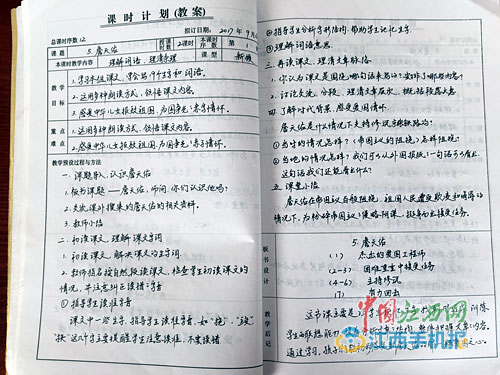 课时计划(教案)
总课时序数 12
拟订日期: 2017年9月
课题
5.詹天佑
授课时数
2课时
本课时序数
第1
本课时教学内容
理解词语,理清条理
课型
新授
教学目标
1.学习本组课文,学会第19个生字和词语。
2.运用多种朗读方式,领悟课文内容。
3.感受中华儿女报效祖国、为国争光
重点难点
1.运用多种朗读方式,领悟课文内容。
2.感受中华儿女报效祖国、为国争光
教学预设过程与方法
一、课题导入,认识詹天佑
1.板书课题——詹天佑,听闻,你们认识他吗?
2.交流课外搜集的詹天佑的相关资料。
3.教师小结
二、初读课文,理解课文字词
1.初读课文,解决课文的生字词
2.教师指名按自然段读课文,检查学生初读课文的
情况,并注意纠正误读字音
①指导学生读准字音
课文中一些生字,指导学生读准字音,
这几个字要提醒学生注意读准,不要读错
②指导学生分析字形结构,帮助学生记忆生字
③理解词语意思
三、再读课文,理清文章脉络
1.你认为课文是围绕哪句话来写的?安排了哪些内容?
2.讨论交流,分段,理清文章层次,概括段落大意
四、了解时代背景,感受爱国情怀
詹天佑是什么情况下主持修筑京张铁路的?
①当时的情况怎样?(帝国主义的阻挠)怎样阻挠?
②当地的情况怎样?我们可以从外国报纸
这句话我们还能看出什么?
五、课堂小结
詹天佑在帝国主义百般阻挠,祖国人民遭受欺凌和嘲讽的
情况下,为粉碎帝国主义侵略阴谋,挺身而出接受任务。
板书设计
5.詹天佑
(1) 杰出的爱国工程师
(2-3) 困难重重中接受任务
(4-6) 主持修筑
(7) 有力回击
教学后记
这节课主要是
训练
通过学习,
中国江西网
江西手机报